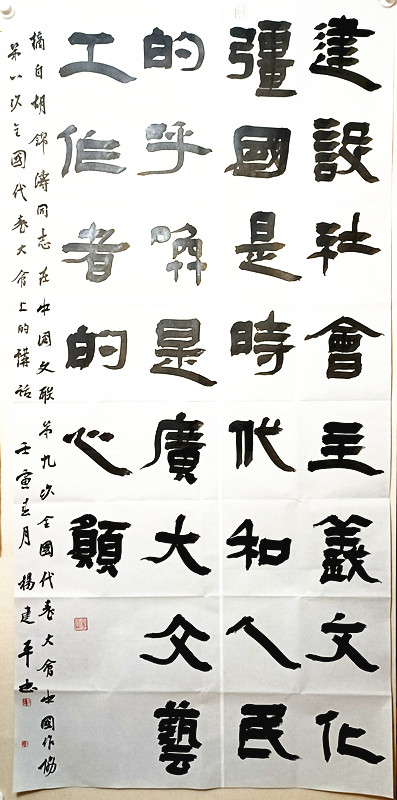 建設社會主義文化
彊國是時代和人民
的呼喚是廣大文藝
工作者的心願
摘自胡錦濤同志在中國文联第九次全國代表大會中國作協
第八次全國代表大會上的講話 壬寅五月 楊建平书